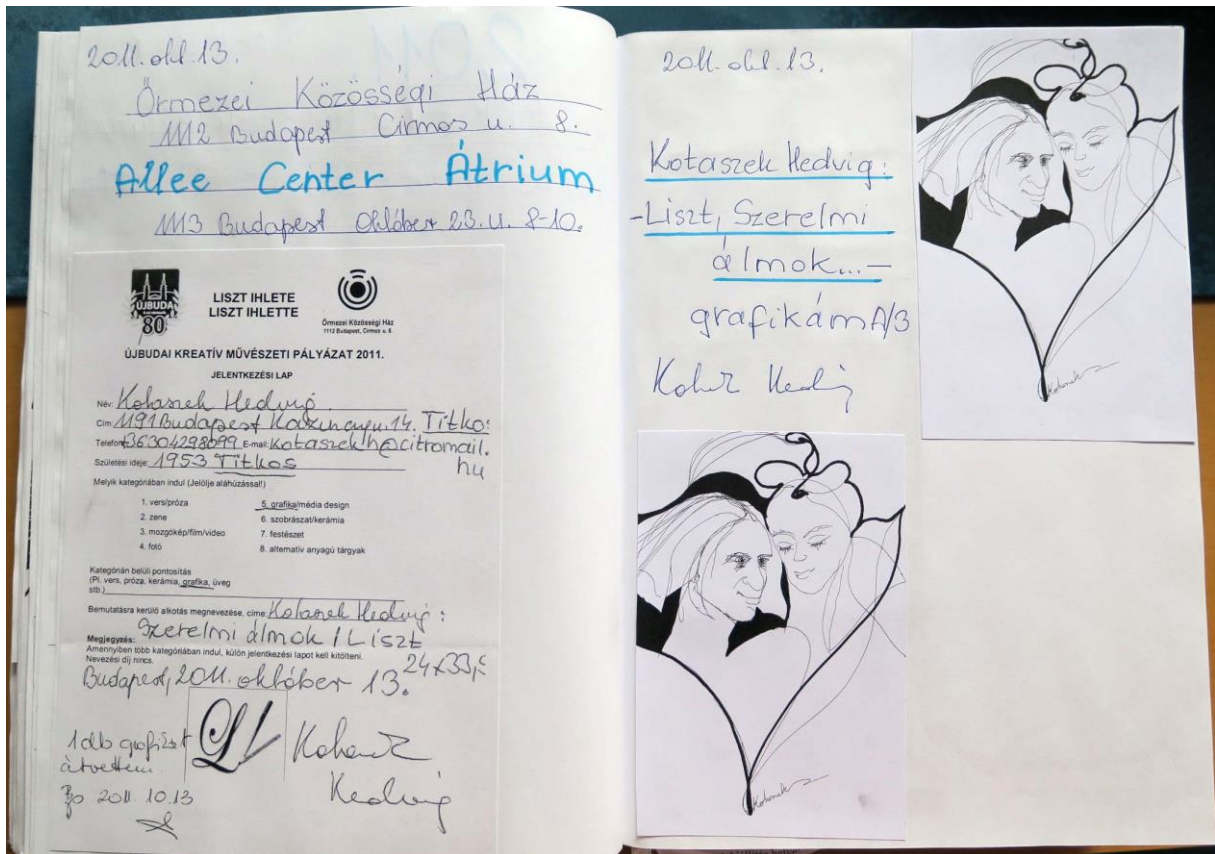 2011. okt. 13.
Őrmezei Közösségi Ház
1112 Budapest Cirmos u. 8.
Allee Center Átrium
1113 Budapest Október 23. u. 8-10.
ÚJBUDA
80
LISZT IHLETE
LISZT IHLETTE
Őrmezei Közösségi Ház
1112 Budapest, Cirmos u. 8.
ÚJBUDAI KREATÍV MŰVÉSZETI PÁLYÁZAT 2011.
JELENTKEZÉSI LAP
Név: Kotaszek Hedvig
Cím: 1191 Budapest Kazinczy u. 14. Titkos
Telefon: +36304298099 E-mail: kotaszek.h@citromail.
hu
Születési ideje: 1953 Titkos
Melyik kategóriában indul (Jelölje aláhúzással!)
1. vers/próza
2. zene
3. mozgókép/film/video
4. fotó
5. grafika/média design
6. szobrászat/kerámia
7. festészet
8. alternatív anyagú tárgyak
Kategórián belüli pontosítás
(Pl. vers, próza, kerámia, grafika, üveg
stb.)
Bemutatásra kerülő alkotás megnevezése, címe: Kotaszek Hedvig:
Szerelmi álmok / Liszt
Megjegyzés:
Amennyiben több kategóriában indul, külön jelentkezési lapot kell kitölteni.
Nevezési díj nincs.
24x33,-
Budapest, 2011. október 13.
1 db grafikát
átvettem.
Bp 2011.10.13
Hedvig
2011. okt. 13.
Kotaszek Hedvig:
-Liszt, Szerelmi
álmok...-
grafikám A/3
Hedvig